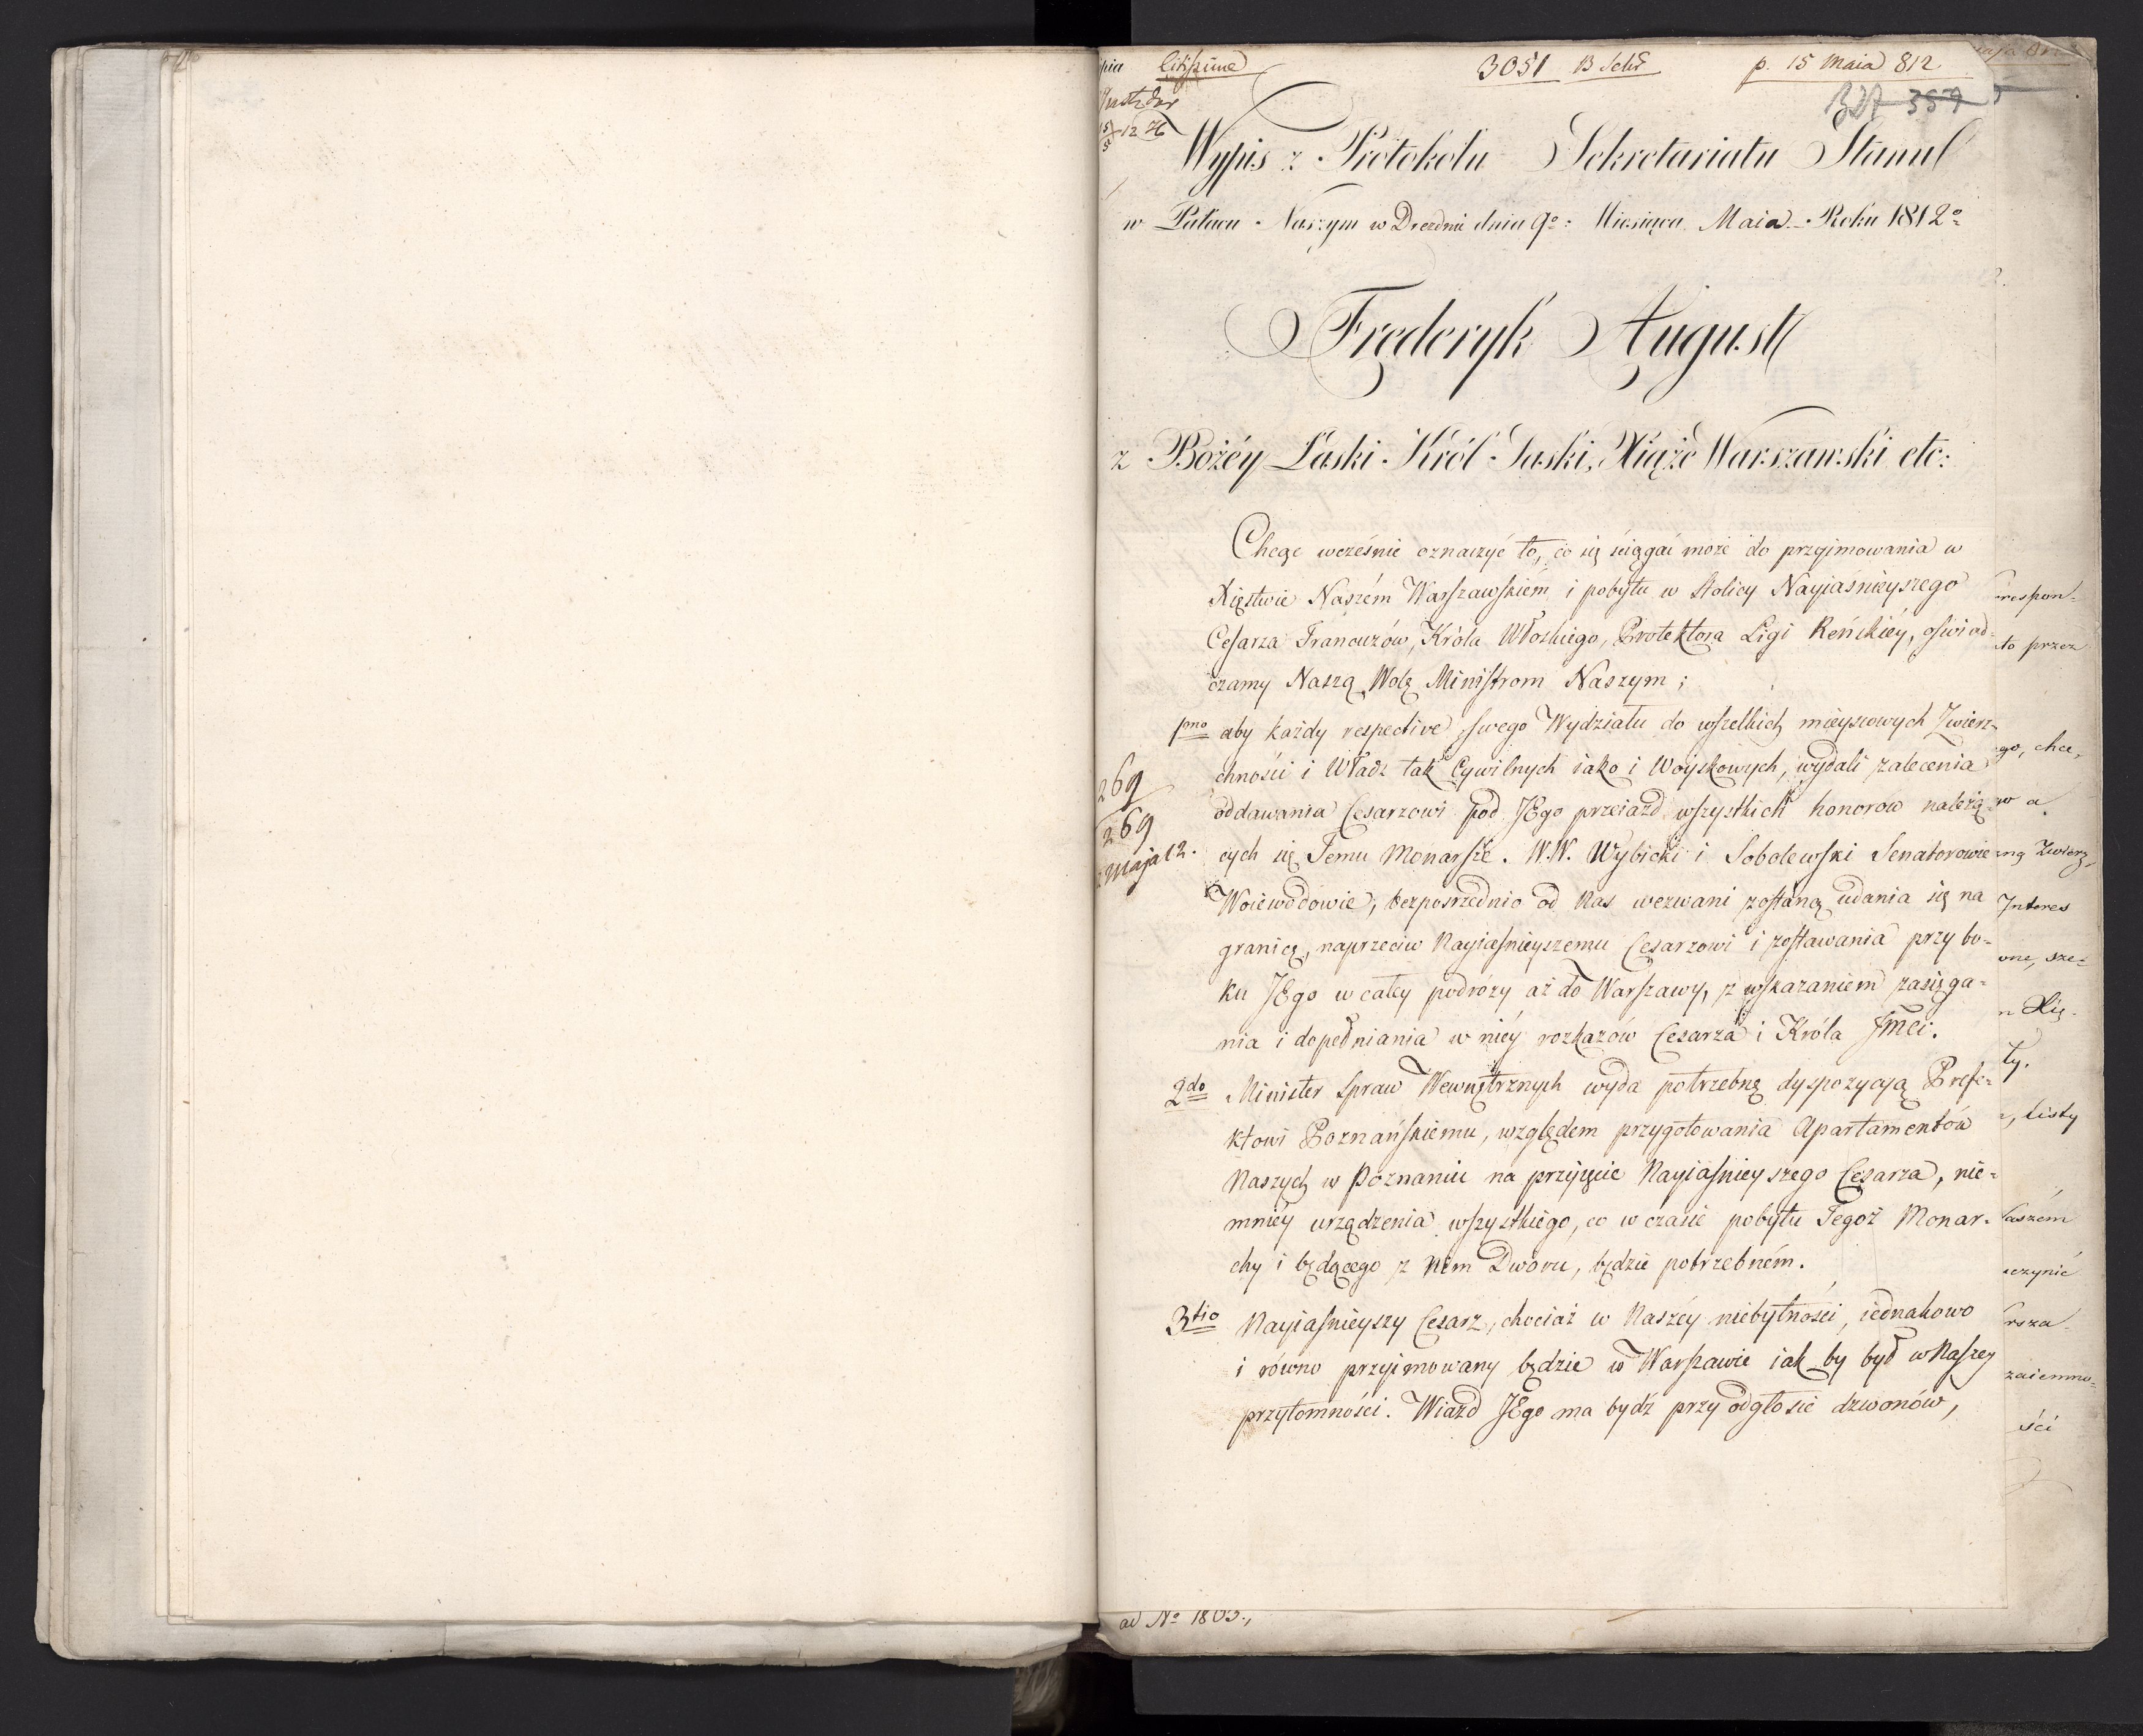 citissime 3051 B p. 15 Maia 812
327 357
Wypis z Protokołu Sekretariatu Stanu
w Pałacu Naszym w Dreznie dnia 9º: Miesiąca Maia Roku 1812º
Frederyk August
z Bożéy Łaski Król Saski, Xiąże Warszawski etc:
Chcąc wcześnie oznaczyć to, co się ściągać może do przyimowania w
Xięstwie Naszém Warszawskiém i pobytu w Stolicy Nayiaśnieyszego
Cesarza Francuzów, Króla Włoskiego, Protektora Ligi Reńskiéy, oświad-
czamy Naszą Wolę Ministrom Naszym;
pmo aby każdy respective swego Wydziału do wszelkich mieyscowych Zwierz-
chności i Władz tak Cywilnych iako i Woyskowych, wydali zalecenia
269
oddawania Cesarzowi pod JEgo przeiazd wszystkich honorów należą-
269
cych się Temu Monarsze. W.W. Wybicki i Sobolewski Senatorowie
Maja 12.
Woiewodowie, bezpośrzednio od Nas wezwani zostaną udania się na
granicę, naprzeciw Nayiaśnieyszemu Cesarzowi i zostawania przy bo-
ku JEgo w całey podróży aż do Warszawy, z wskazaniem zasięga-
nia i dopełniania w niéy rozkazów Cesarza i Króla Jmci.
2do Minister Spraw Wewnętrznych wyda potrzebną dyspozycyą Prefe-
ktowi Poznańskiemu, względem przygotowania Apartamentów
Naszych w Poznaniu na przyięcie Nayiaśnieyszego Cesarza, nie-
mniéy urządzenia wszystkiego, co w czasie pobytu Tegoż Monar-
chy i będącego z Nim Dworu, będzie potrzebném.
3tio Nayiaśnieyszy Cesarz, chociaż w Naszéy niebytności, iednakowo
i równo przyimowany będzie w Warszawie iak by był w Naszey
przytomności. Wiazd JEgo ma bydź przy odgłosie dzwonów,
respon-
to przez
go, chcą,
Zwierz,
Interes
Xię-
ty.
listy
czynić
zaiemno-
ści
ad Nº 1803.,